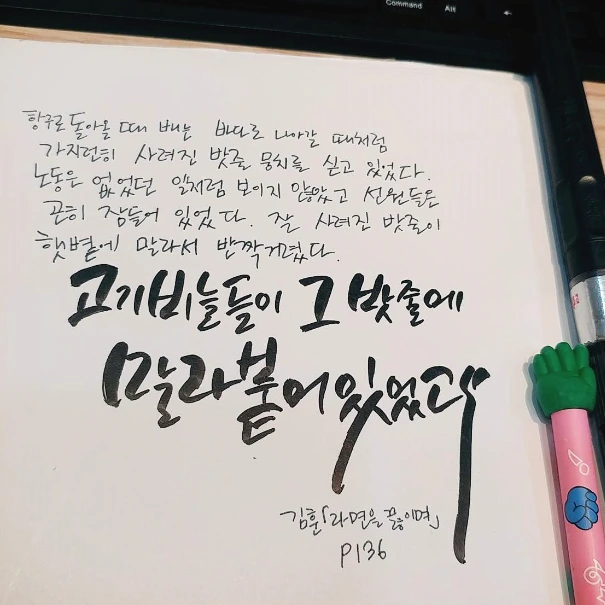 Command
Alt
항구로 돌아올 때 배는 바다로 나아갈 때처럼
가지런히 사려진 밧줄 뭉치를 싣고 있었다.
노동은 없었던 일처럼 보이지 않았고 선원들은
곤히 잠들어 있었다. 잘 사려진 밧줄이
햇볕에 말라서 반짝거렸다.
고기비늘들이 그 밧줄에
말라붙어있었다
김훈「라면을 끓이며」
P136